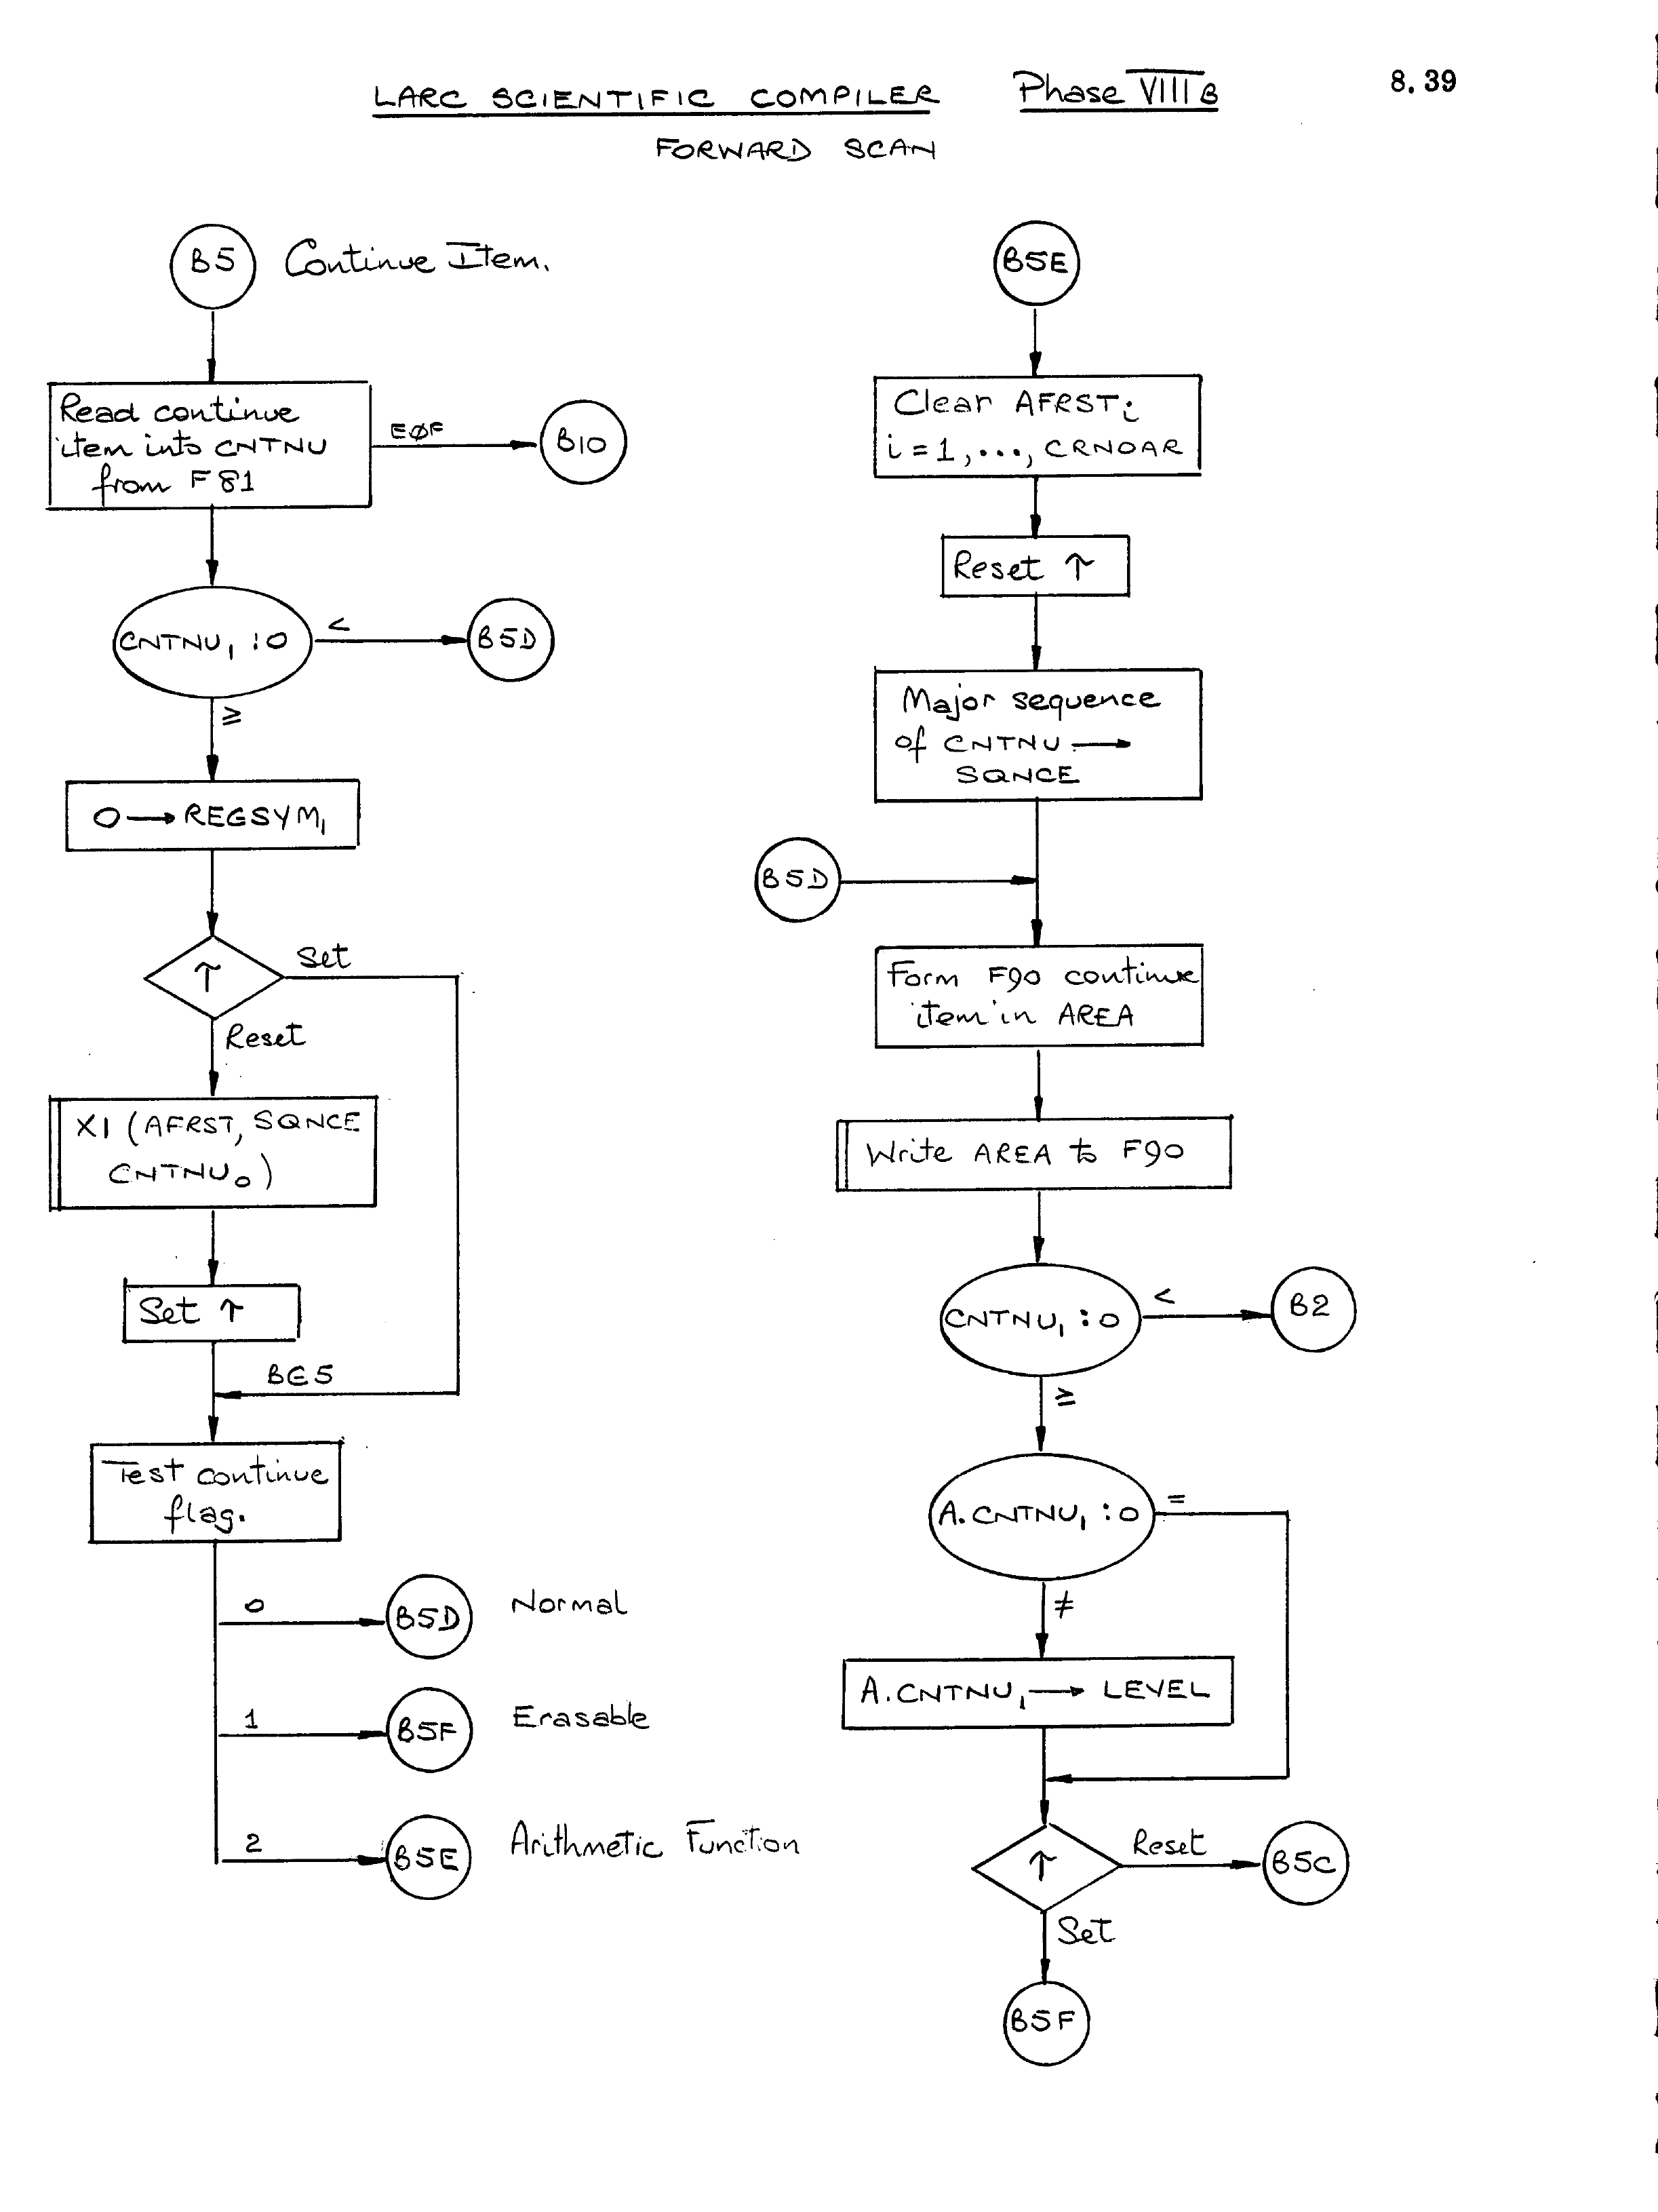 LARC SCIENTIFIC COMPILER Phase VIII B
8.39
FORWARD SCAN
B5 Continue Item.
Read continue
item into CNTNU
from F81
EØF
B10
CNTNU₁ : 0
<
B5D
≥
0 → REGSYM₁
↑
Set
Reset
X1 (AFRST, SQNCE
CNTNU₀)
Set ↑
BE5
Test continue
flag.
0
B5D
Normal
1
B5F
Erasable
2
B5E
Arithmetic Function
B5E
Clear AFRSTᵢ
i = 1, ..., CRNOAR
Reset ↑
Major sequence
of CNTNU →
SQNCE
B5D
Form F90 continue
item in AREA
Write AREA to F90
CNTNU₁ : 0
<
B2
≥
A.CNTNU₁ : 0
=
≠
A.CNTNU₁ → LEVEL
↑
Reset
B5C
Set
B5F